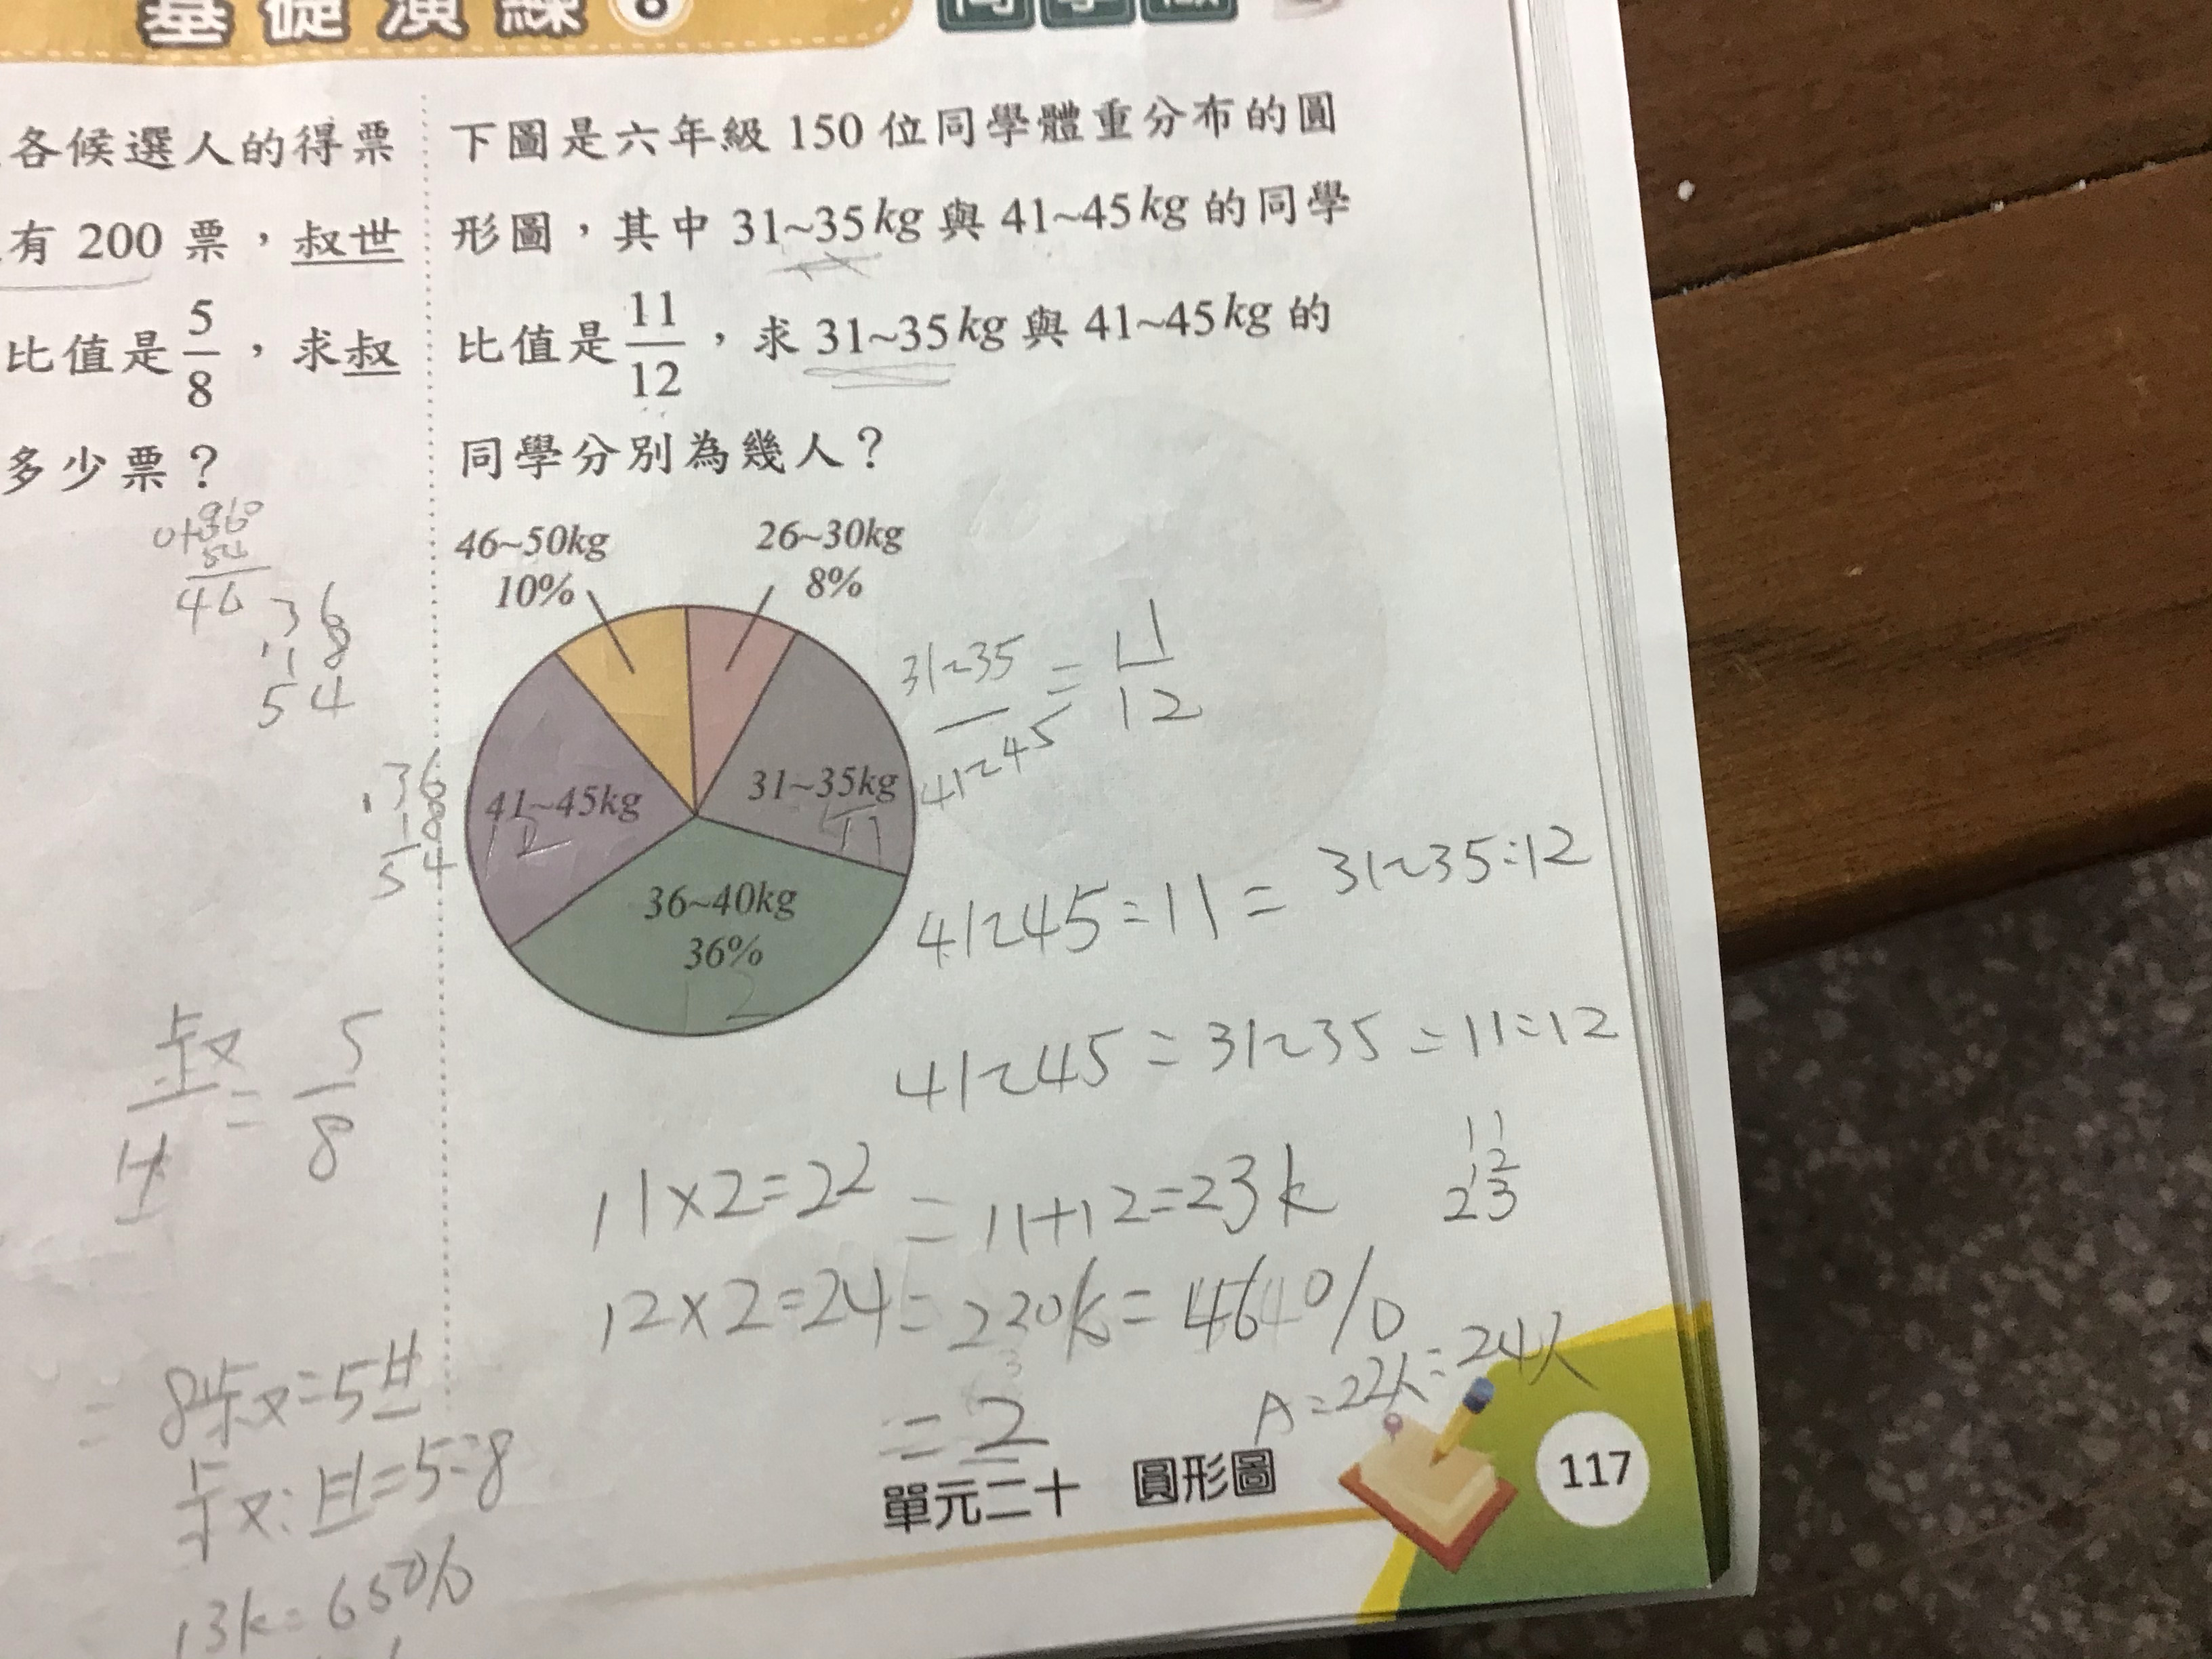 基礎演練8
各候選人的得票
有 200 票，叔世
比值是 5/8 ，求叔
多少票？
360
54
46
36
18
54
36
18
54
叔/世 = 5/8
= 8叔=5世
叔:世=5:8
13k=650%
下圖是六年級 150 位同學體重分布的圓
形圖，其中 31~35kg 與 41~45kg 的同學
比值是 11/12 ，求 31~35kg 與 41~45kg 的
同學分別為幾人？
46~50kg
10%
26~30kg
8%
41~45kg
12
31~35kg
11
36~40kg
36%
12
31~35/41~45 = 11/12
41~45:11=31~35:12
41~45:31~35=11:12
11×2=22 = 11+12=23k
11
12
23
12×2=24 = 23k=46%
= 2
A=22人:24人
單元二十 圓形圖
117